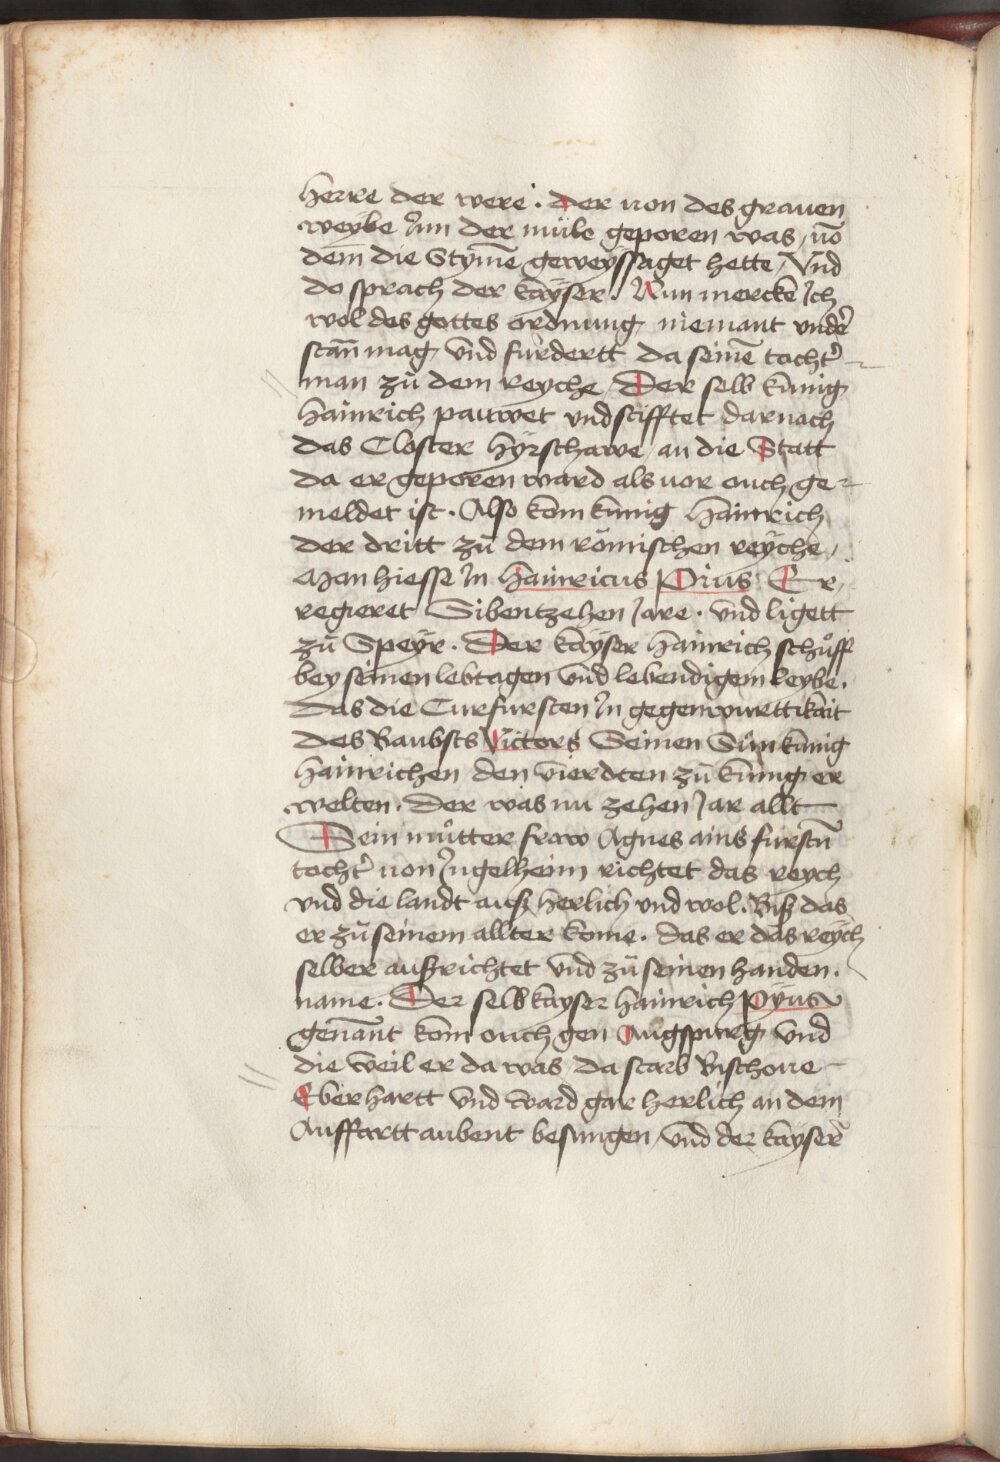 herre der were . Der von des grauen
weybe Inn der müle geporen was / vō
dem die Stym̄e geweyssaget hette / Vnd
do sprach der kayser . Nun mercke Ich
wol des gottes ordnung niemant vnder̄
stan̄ mag vnd furdertt da seinē tocht̄
man zū dem reyche / Der selb kunig
Hainrich pauwet vnd stifftet darnach
das Closter Hyrschawe / an die Statt
da er geporen ward als vor ouch ge-
meldet ist . Also kom kunig Hainrich
der dritt zū dem römischen reyche /
Man hiesse In Hainricus Pius Er
regieret Sibentzehen Jare . vnd ligett
zū Speyr . Der kayser Hainrich schůff
bey seinen lebtagen vnd lebendigem leybe .
Das die Curfursten In gegenwurttikait
des Baubsts Victors Seinen Sun kunig
Hainrichen den vierdten zū kunig er
welten . Der was nu zehen Jar allt
Sein můtter fraw Agnes ains furstn̄
tocht̄ von Ingelheim richtet das reych
vnd die landt auß herlich vnd wol . Biß das
er zū seinem allter kome . das er das reych
selber außrichtet vnd zū seinen handen .
name . Der selb kayser Hainrich Pyus
genān̄t kom ouch gen Augspurg vnd
die weil er da was / da starb Bischoue
Eberhartt vnd ward gar herlich an dem
Auffartt aubent besungen / vnd der kayser̄